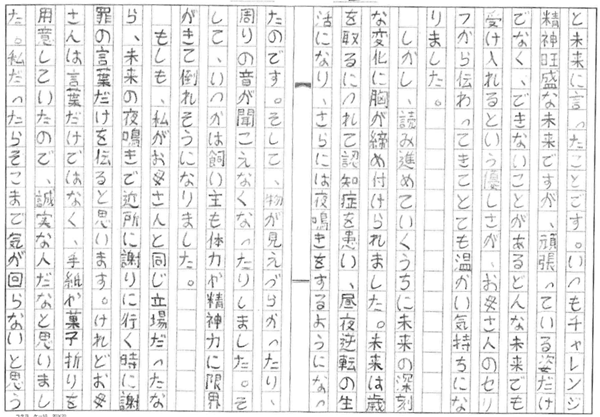 と未来に言ったことです。いつもチャレンジ
精神旺盛な未来ですが、頑張っている姿だけ
でなく、できないことがあるどんな未来でも
受け入れるという優しさが、お母さんのセリ
フから伝わってきてとても温かい気持ちにな
りました。
しかし、読み進めていくうちに未来の深刻
な変化に胸が締め付けられました。未来は歳
を取るにつれて認知症を患い、昼夜逆転の生
活になり、さらには夜鳴きをするようになっ
たのです。そして、物が見えづらかったり、
周りの音が聞こえなくなったりしました。そ
して、いつかは飼い主も体力が精神力に限界
がきて倒れそうになりました。
もしも、私がお母さんと同じ立場だったな
ら、未来の夜鳴きで近所に謝りに行く時に謝
罪の言葉だけを伝ると思います。けれどお母
さんは言葉だけではなく、手紙か菓子折りを
用意していたので、誠実な人だなと思いまし
た。私だったらそこまで気が回らないと思う